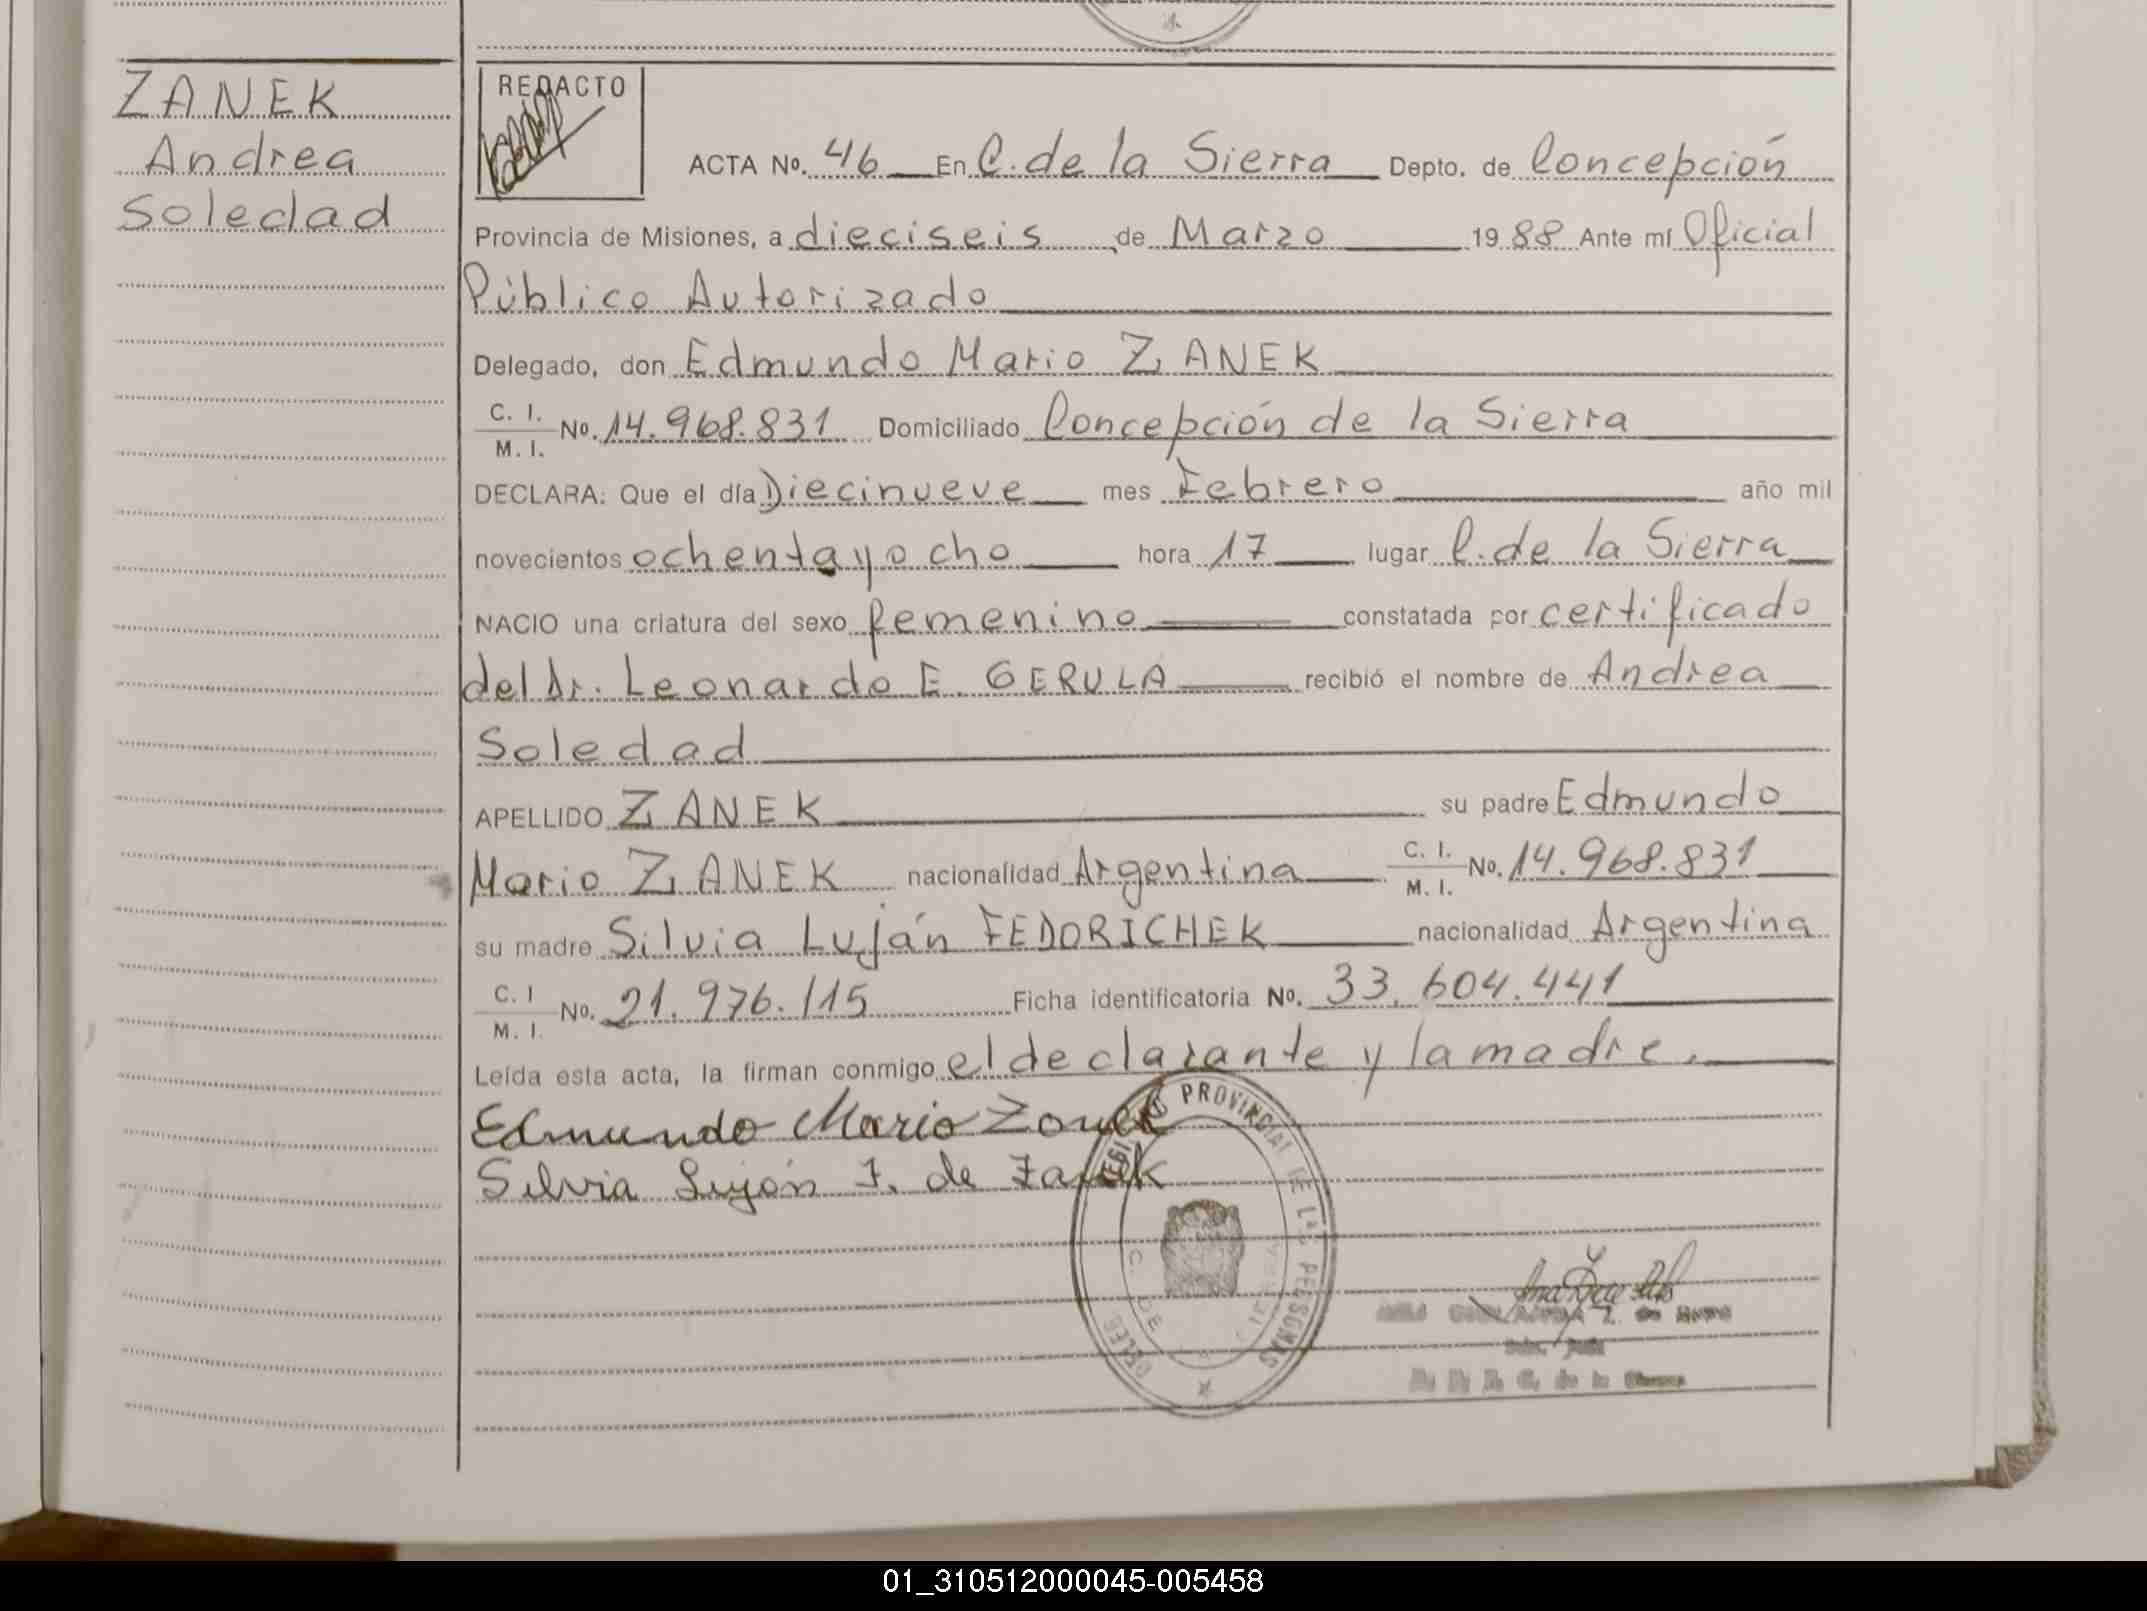 ZANEK
Andrea
Soledad
REDACTO
ACTA Nº. 46 En C. de la Sierra Depto. de Concepción
Provincia de Misiones, a dieciseis de Marzo 1988 Ante mí Oficial
Público Autorizado
Delegado, don Edmundo Mario ZANEK
C. I. M. I. Nº. 14.968.831 Domiciliado Concepción de la Sierra
DECLARA: Que el día Diecinueve mes Febrero año mil
novecientos ochentayocho hora 17 lugar C. de la Sierra
NACIO una criatura del sexo femenino constatada por certificado
del Dr. Leonardo E. GERULA recibió el nombre de Andrea
Soledad
APELLIDO ZANEK su padre Edmundo
Mario ZANEK nacionalidad Argentina C. I. M. I. Nº. 14.968.831
su madre Silvia Luján FEDORICHEK nacionalidad Argentina
C. I M. I. Nº. 21.976.115 Ficha identificatoria Nº. 33.604.441
Leída esta acta, la firman conmigo el declarante y la madre.
Edmundo Mario Zanek
Silvia Luján F. de Zanek
PROVINCIAL DE LAS PERSONAS
C. DE
de la Sierra
01_310512000045-005458